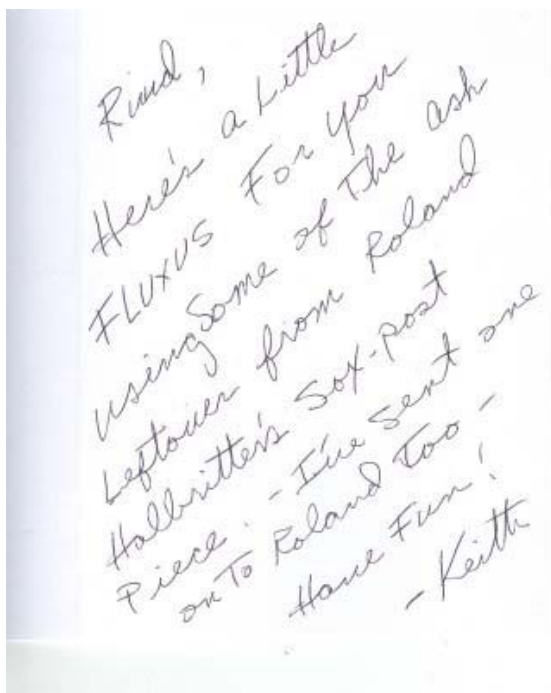 Ruud,
Here's a Little
FLUXUS For you
using Some of The ash
Leftover from Roland
Halbritter's Sox-post
Piece. - I've sent one
on To Roland Too -
Have Fun!
- Keith